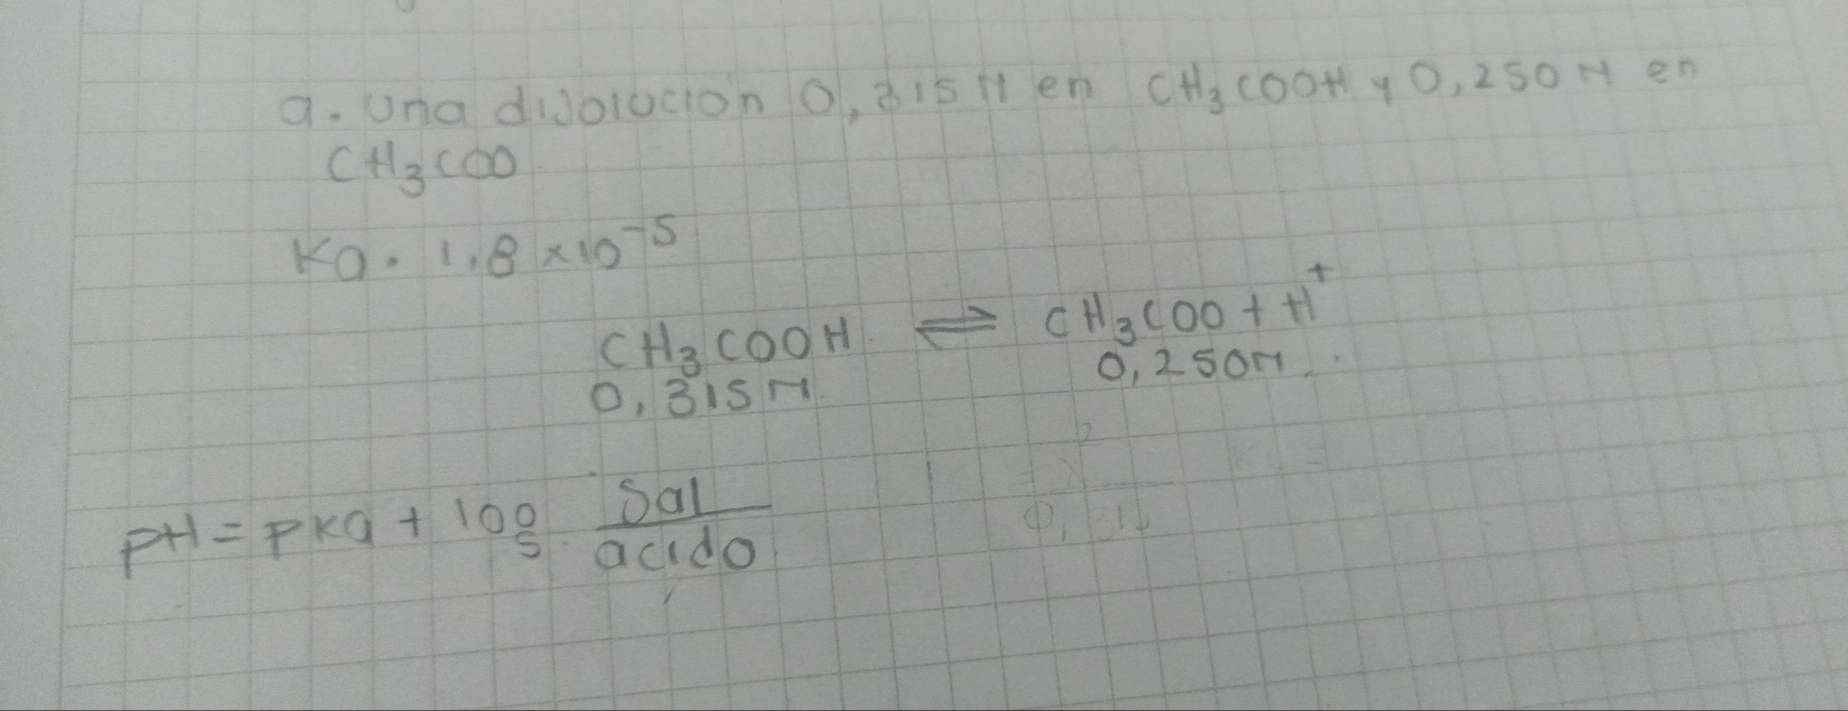 a. una disolución 0,315 M en CH₃COOH y 0,250 M en
CH₃COO
Ka. 1.8 × 10⁻⁵
CH₃COOH ⇌ CH₃COO + H⁺
0,315 M. 0,250 M.
pH = pKa + log Sal / acido